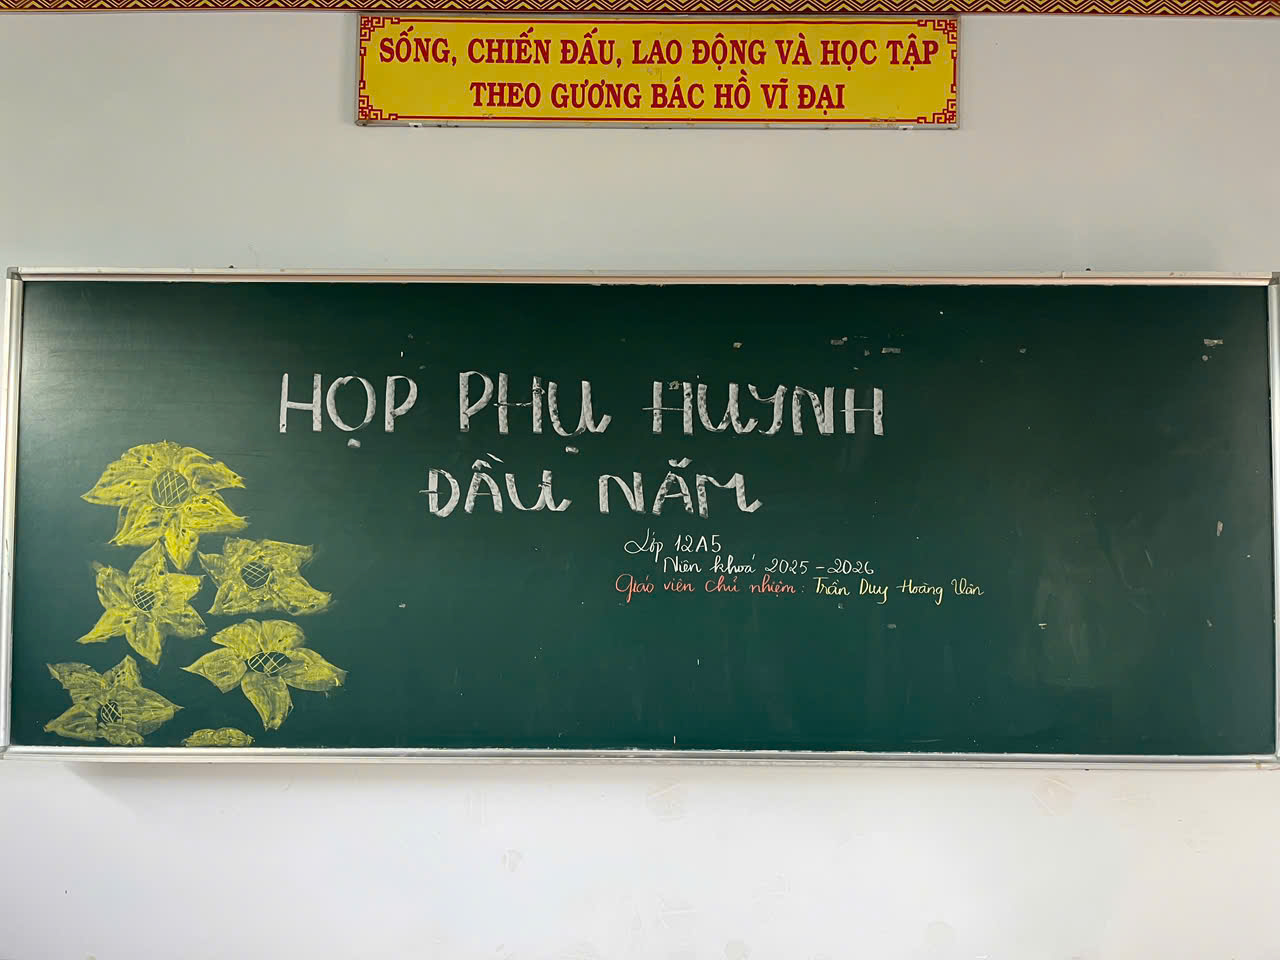 SỐNG, CHIẾN ĐẤU, LAO ĐỘNG VÀ HỌC TẬP
THEO GƯƠNG BÁC HỒ VĨ ĐẠI
HỌP PHỤ HUYNH
ĐẦU NĂM
Lớp 12A5
Niên khoá 2025 - 2026
Giáo viên chủ nhiệm: Trần Duy Hoàng Vân